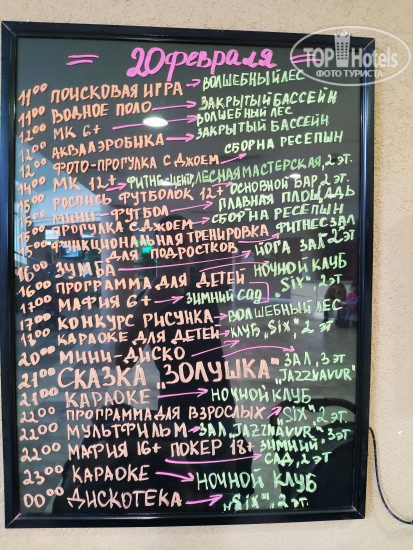 20 февраля
TOP Hotels
ФОТО ТУРИСТА
11⁰⁰ ПОИСКОВАЯ ИГРА → ВОЛШЕБНЫЙ ЛЕС
11⁰⁰ ВОДНОЕ ПОЛО → ЗАКРЫТЫЙ БАССЕЙН
12⁰⁰ МК 6+ → ВОЛШЕБНЫЙ ЛЕС
12⁰⁰ АКВААЭРОБИКА → ЗАКРЫТЫЙ БАССЕЙН
12⁰⁰ ФОТО-ПРОГУЛКА С ДЖОЕМ СБОР НА РЕСЕПЫН
14⁰⁰ МК 12+ → ФИТНЕС-ЦЕНТР, ЛЕСНАЯ МАСТЕРСКАЯ, 2 ЭТ.
15⁰⁰ РОСПИСЬ ФУТБОЛОК 12+ ОСНОВНОЙ БАР, 2 ЭТ.
15⁰⁰ МИНИ-ФУТБОЛ → ГЛАВНАЯ ПЛОЩАДЬ
15⁰⁰ ПРОГУЛКА С ДЖОЕМ → СБОР НА РЕСЕПЫН
15⁰⁰ ФУНКЦИОНАЛЬНАЯ ТРЕНИРОВКА ФИТНЕС ЗАЛ
ДЛЯ ПОДРОСТКОВ 2 ЭТ
16⁰⁰ ЗУМБА → ЙОГА ЗАЛ
16⁰⁰ ПРОГРАММА ДЛЯ ДЕТЕЙ НОЧНОЙ КЛУБ
17⁰⁰ МАФИЯ 6+ → ЗИМНИЙ САД, "SIX", 2 ЭТ
17⁰⁰ КОНКУРС РИСУНКА → ВОЛШЕБНЫЙ ЛЕС
КАРАОКЕ ДЛЯ ДЕТЕЙ → КЛУБ „SIX", 2 ЭТ
20⁰⁰ МИНИ-ДИСКО
21⁰⁰ СКАЗКА „ЗОЛУШКА" ЗАЛ, 3 ЭТ „JAZZNAVUR"
21⁰⁰ КАРАОКЕ → НОЧНОЙ КЛУБ
22⁰⁰ ПРОГРАММА ДЛЯ ВЗРОСЛЫХ → „SIX", 2 ЭТ.
22⁰⁰ МУЛЬТФИЛЬМ → ЗАЛ „JAZZNAVUR", 3 ЭТ
22⁰⁰ МАФИЯ 16+ ПОКЕР 18+ ЗИМНИЙ САД, 2 ЭТ.
23⁰⁰ КАРАОКЕ → НОЧНОЙ КЛУБ
00⁰⁰ ДИСКОТЕКА → „SIX", 2 ЭТ.